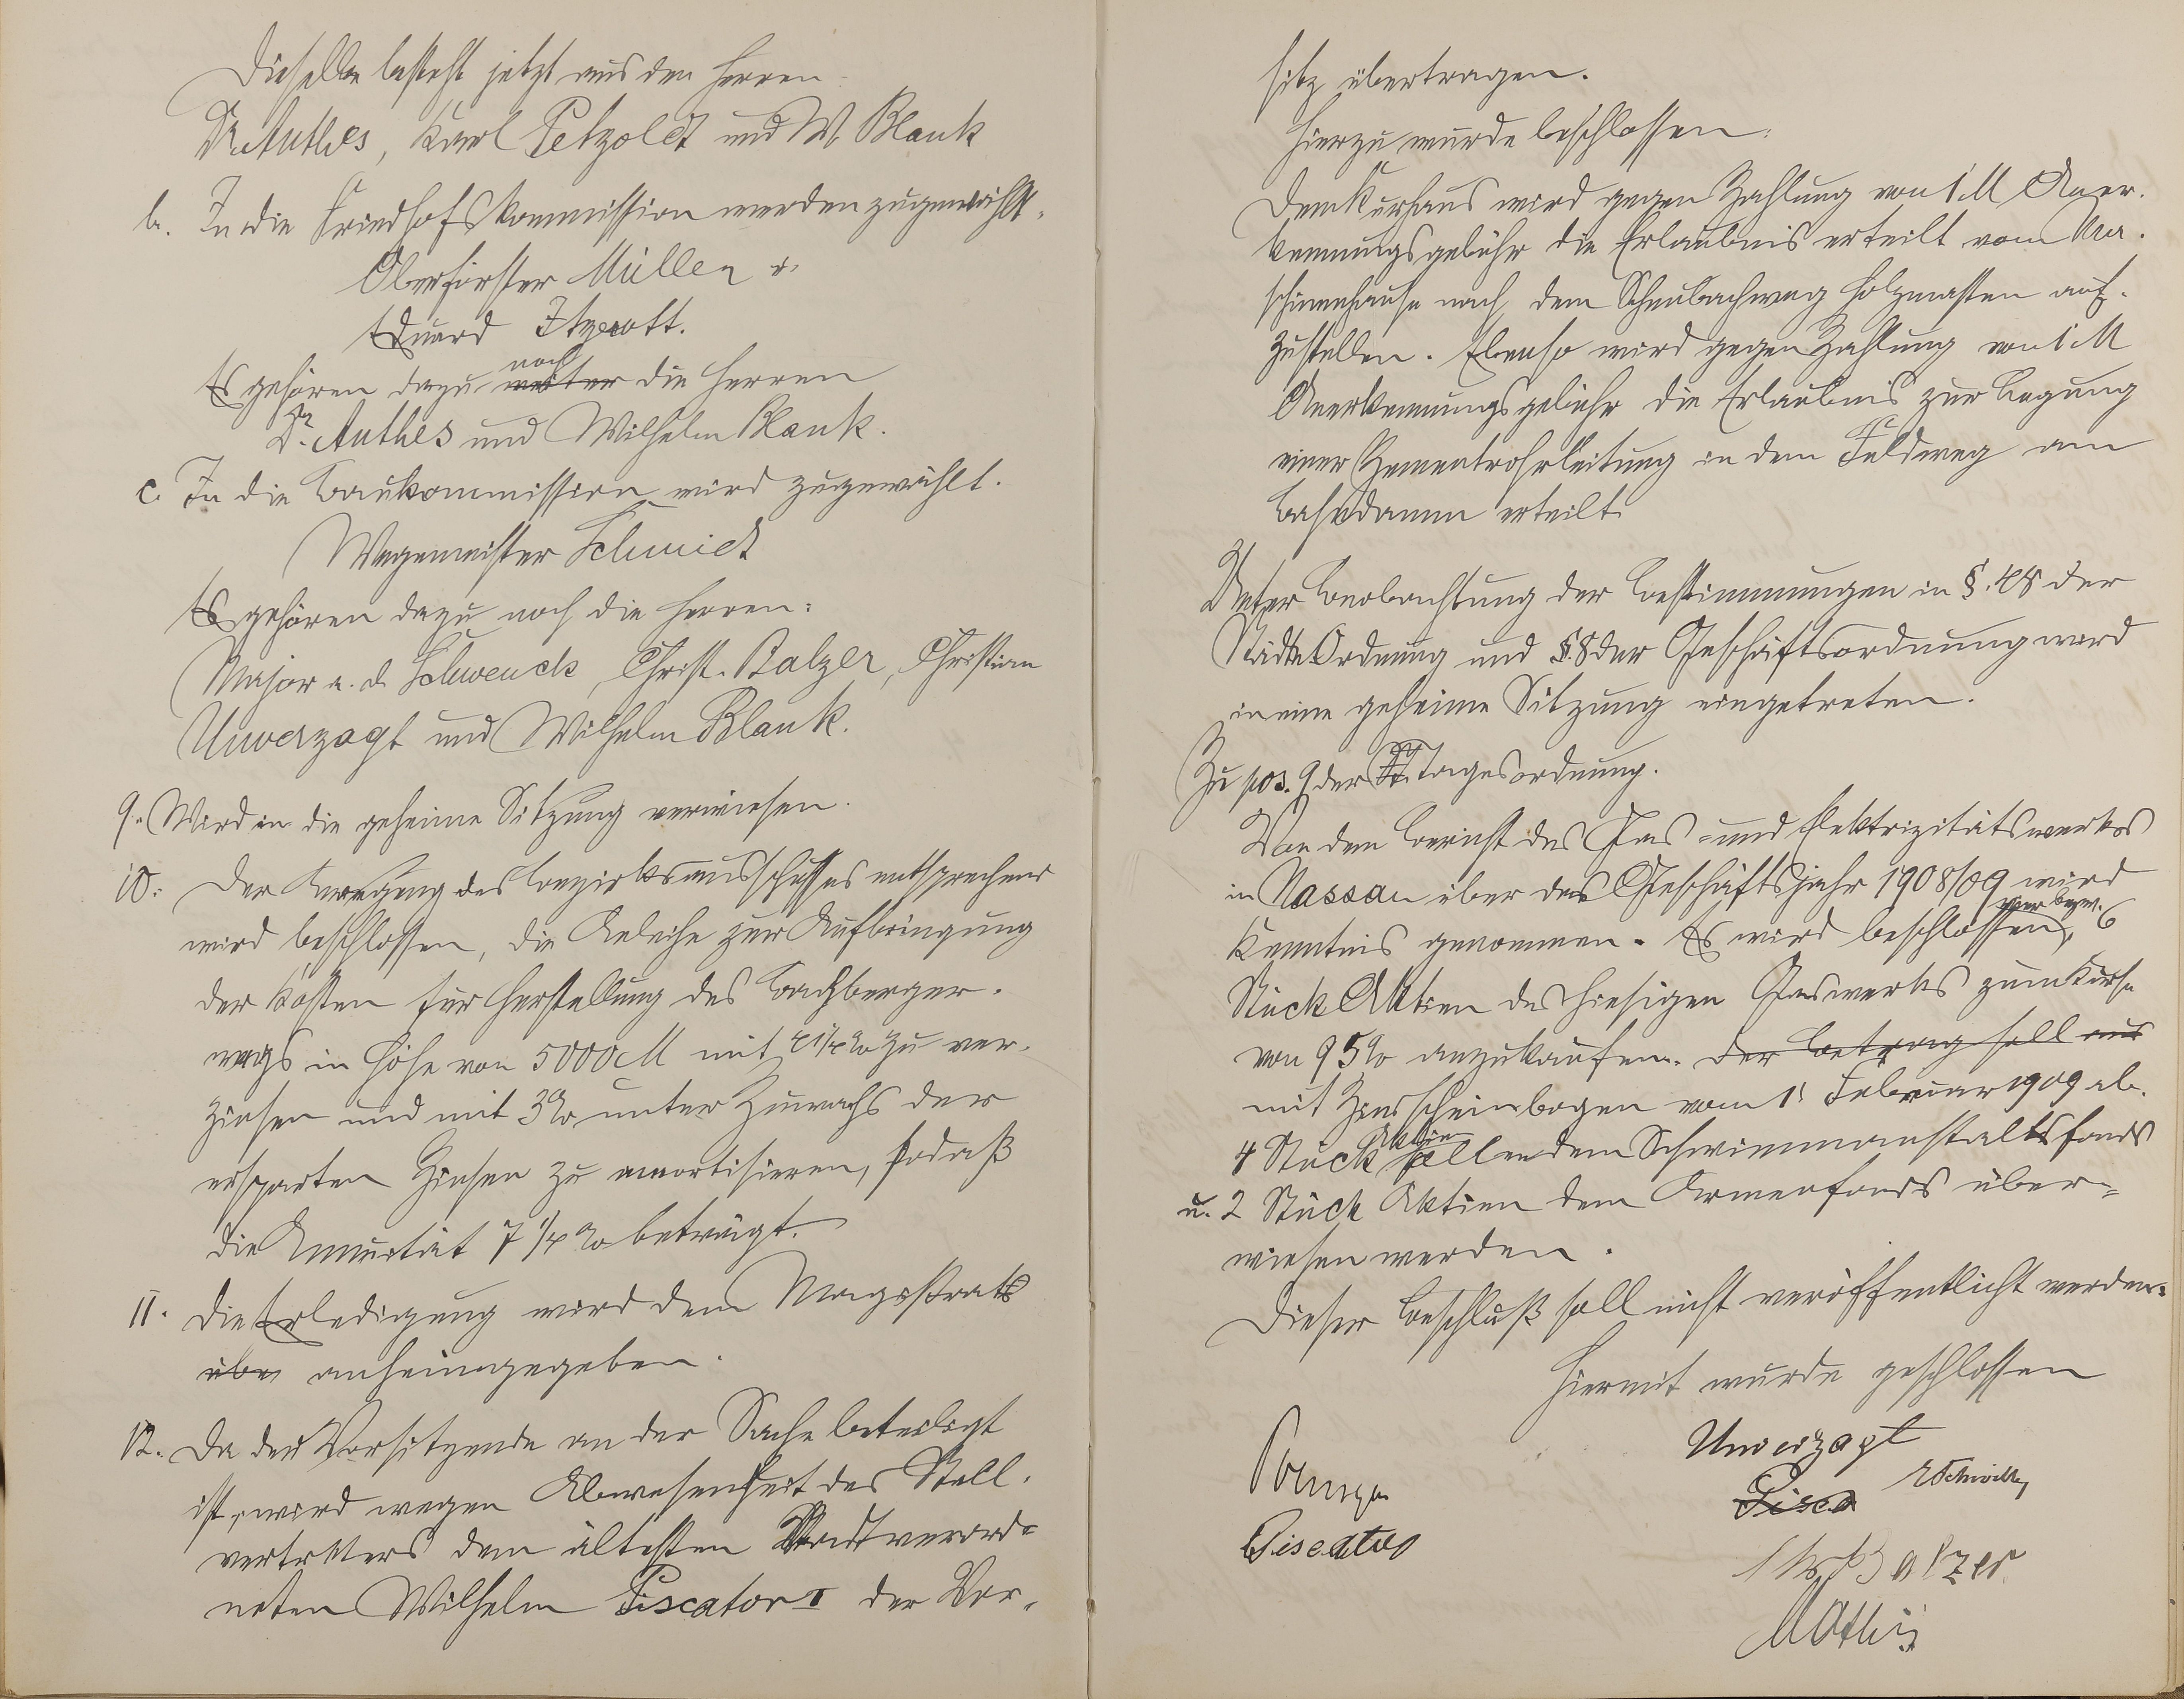 Dieselbe besteht jetzt aus den Herren
Dr. Anthes, Karl Petzoldt und W. Blank
b. In die Friedhofskommission werden zugewählt.
Oberförster Müller u.
Eduard Itzerott.
noch
Es gehören dazu weiter die Herren
Dr. Anthes und Wilhelm Blank.
c. In die Baukommission wird zugewählt.
Wegemeister Schmidt
Es gehören dazu noch die Herren:
Major a. d. Schwenck, Christ. Balzer, Christian
Unverzagt und Wilhelm Blank.
9. Wird in die geheime Sitzung verwiesen.
10. Der Anregung des Bezirksausschusses entsprechend
wird beschlossen, die Anleihe zur Aufbringung
der Kosten für Herstellung des Bachberger-
wegs in Höhe von 5000 M mit 4 1/4 % zu ver-
zinsen und mit 3 % unter Zuwachs der
ersparten Zinsen zu amortisieren, sodaß
die Annuität 7 1/4 % beträgt.
11. Die Erledigung wird dem Magistrats
übe anheimgegeben.
12. Da der Vorsitzende an der Sache beteiligt
ist, wird wegen Abwesenheit des Stell-
vertreters dem ältesten Stadtverord-
neten Wilhelm Piscator I der Vor-
sitz übertragen.
Hierzu wurde beschlossen:
Dem Kurhaus wird gegen Zahlung von 1 M Aner-
kennungsgebühr die Erlaubnis erteilt vom Ma-
schinenhause nach dem Scheubachweg Holzmasten auf-
zustellen. Ebenso wird gegen Zahlung von 1 M
Anerkennungsgebühr die Erlaubnis zur Legung
einer Zementrohrleitung in dem Feldweg am
Bahndamm erteilt.
Unter Beobachtung der Bestimmungen in §. 48 der
Städte Ordnung und §. 8 der Geschäftsordnung ward
in eine geheime Sitzung eingetreten.
Zu pos. 9 der Tagesordnung.
Von dem Bericht des Gas- und Elektrizitätswerks
in Nassau über das Geschäftsjahr 1908/09 wird
Kenntnis genommen. Es wird beschlossen, 6
Stück Aktien des hiesigen Gaswerks zum Kurse
von 95 % anzukaufen. Der Betrag soll aus
mit Zinsscheinbogen vom 1. Februar 1909 ab.
Aktien
4 Stück sollen dem Schwimmanstaltsfonds
u. 2 Stück Aktien dem Armenfonds über-
wiesen werden.
Dieser Beschluß soll nicht veröffentlicht werden.
Hiermit wurde geschlossen
Unverzagt
Pisca
Piscator
Chr. Balzer